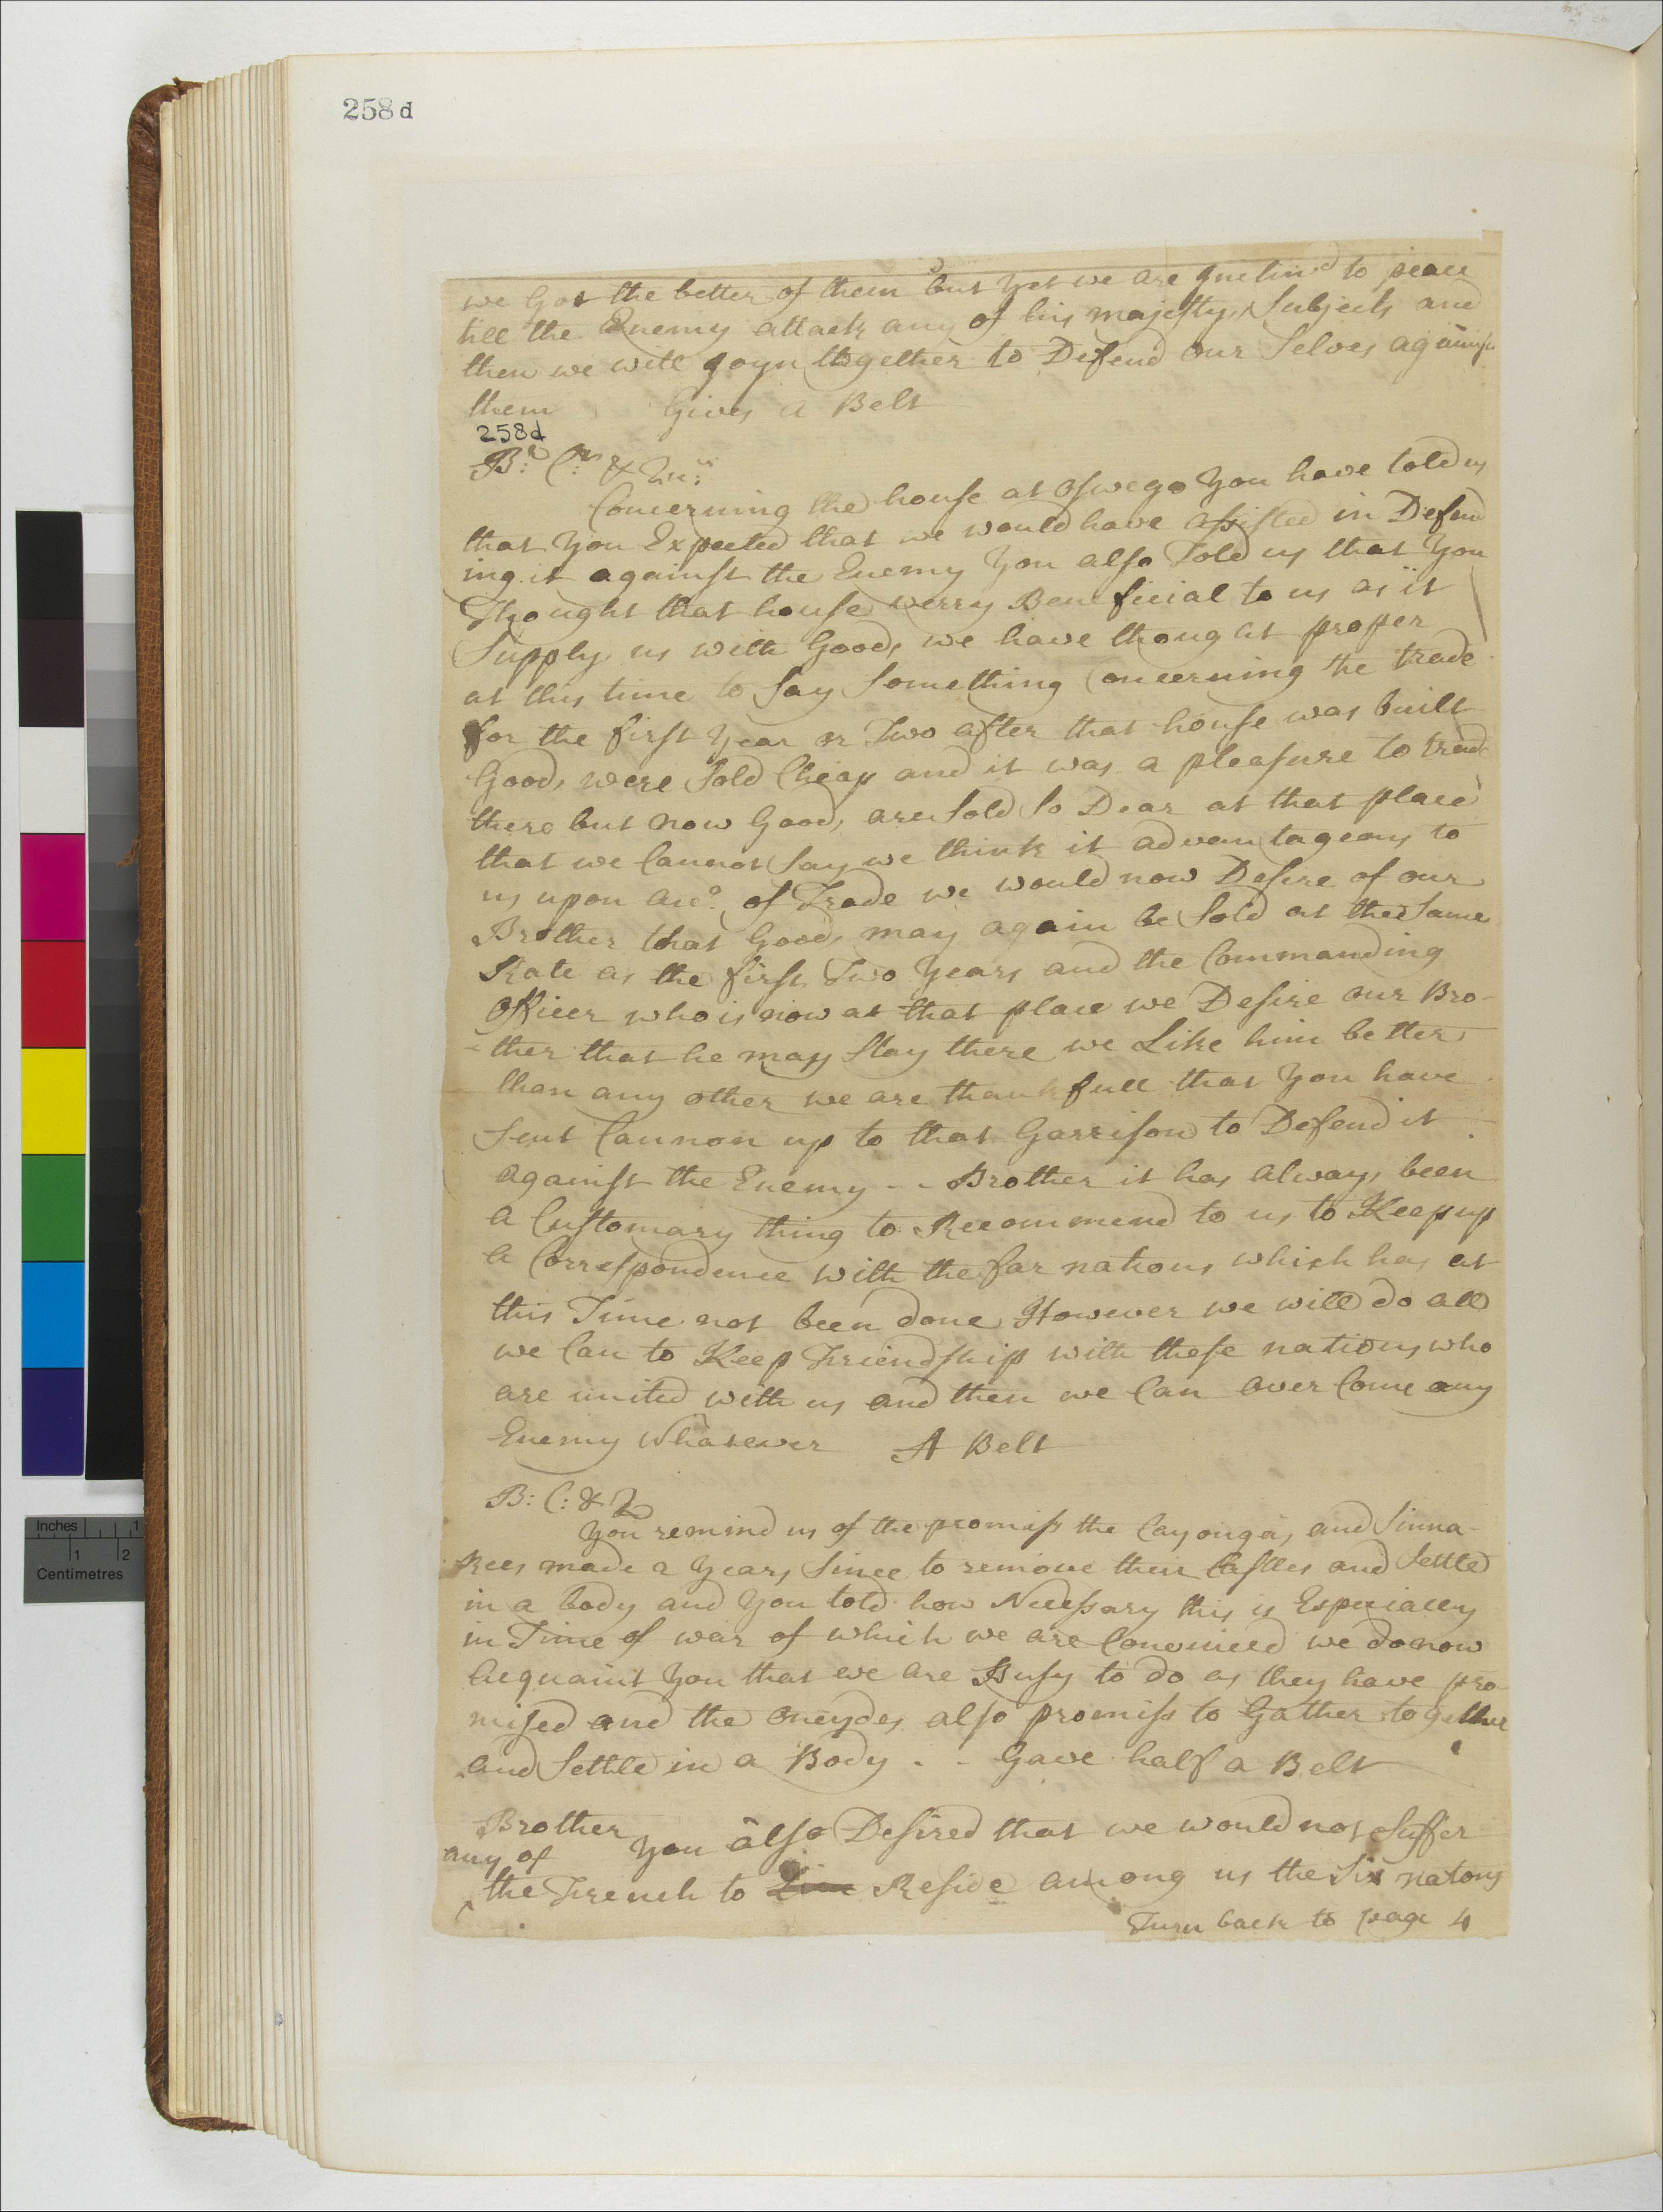 258 d
we Got the better of them but Yet we are Inclin'd to peace
till the Enemy attack any of his majestys Subjects and
then we will Joyn together to Defend our Selves against
them Gives a Belt
258d
Br: Cr: & Qu:
Concerning the house at Oswego You have told us
that You Expected that we would have assisted in Defend
ing it against the Enemy You also Told us that You
Thought that house verry Beneficial to us as it
Supply us with Goods we have thought proper
at this time to say Something Concerning the trade
for the first Year or Two after that house was built
Goods were Sold Cheap and it was a pleasure to trade
there but now Goods are Sold So Dear at that place
that we Cannot Say we think it advantageous to
us upon acco. of Trade we would now Desire of our
Brother that Goods may again be Sold at the Same
Rate as the first Two Years and the Commanding
Officer who is now at that place we Desire our Bro-
-ther that he may Stay there we Like him better
than any other we are thankfull that You have
Sent Cannon up to that Garrison to Defend it
against the Enemy - - Brother it has always been
a Customary thing to Recommend to us to Keep up
a Correspondence with the far nations which has at
this Time not been done However we will do all
we Can to Keep Friendship with these nations who
are united with us and then we Can over Come any
Enemy Whatever A Belt
B: C: & Q
You remind us of the promiss the Cayougas and Sinna-
kees made 2 Years Since to remove their Castles and Settle
in a body and You told how Necessary this is Especially
in Time of war of which we are Convinced we do now
Acquaint You that we are Busy to do as they have pro-
mised and the Oneydes also promiss to Gather together
and Settle in a Body - - Gave half a Belt
Brother You also Desired that we would not Suffer
any of
the French to Reside among us the Six nations
Turn back to page 4
Inches 1
1 2
Centimetres